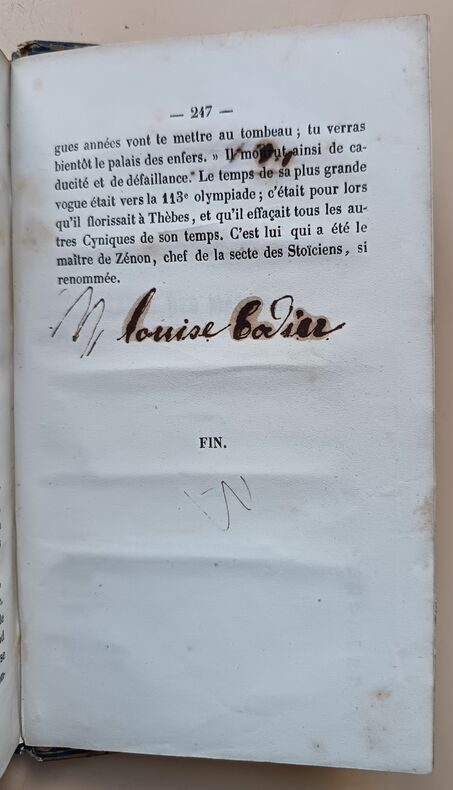 — 247 —
gues années vont te mettre au tombeau ; tu verras
bientôt le palais des enfers. » Il mourut ainsi de ca-
ducité et de défaillance. Le temps de sa plus grande
vogue était vers la 113e olympiade ; c'était pour lors
qu'il florissait à Thèbes, et qu'il effaçait tous les au-
tres Cyniques de son temps. C'est lui qui a été le
maître de Zénon, chef de la secte des Stoïciens, si
renommée.
louise bodin
FIN.